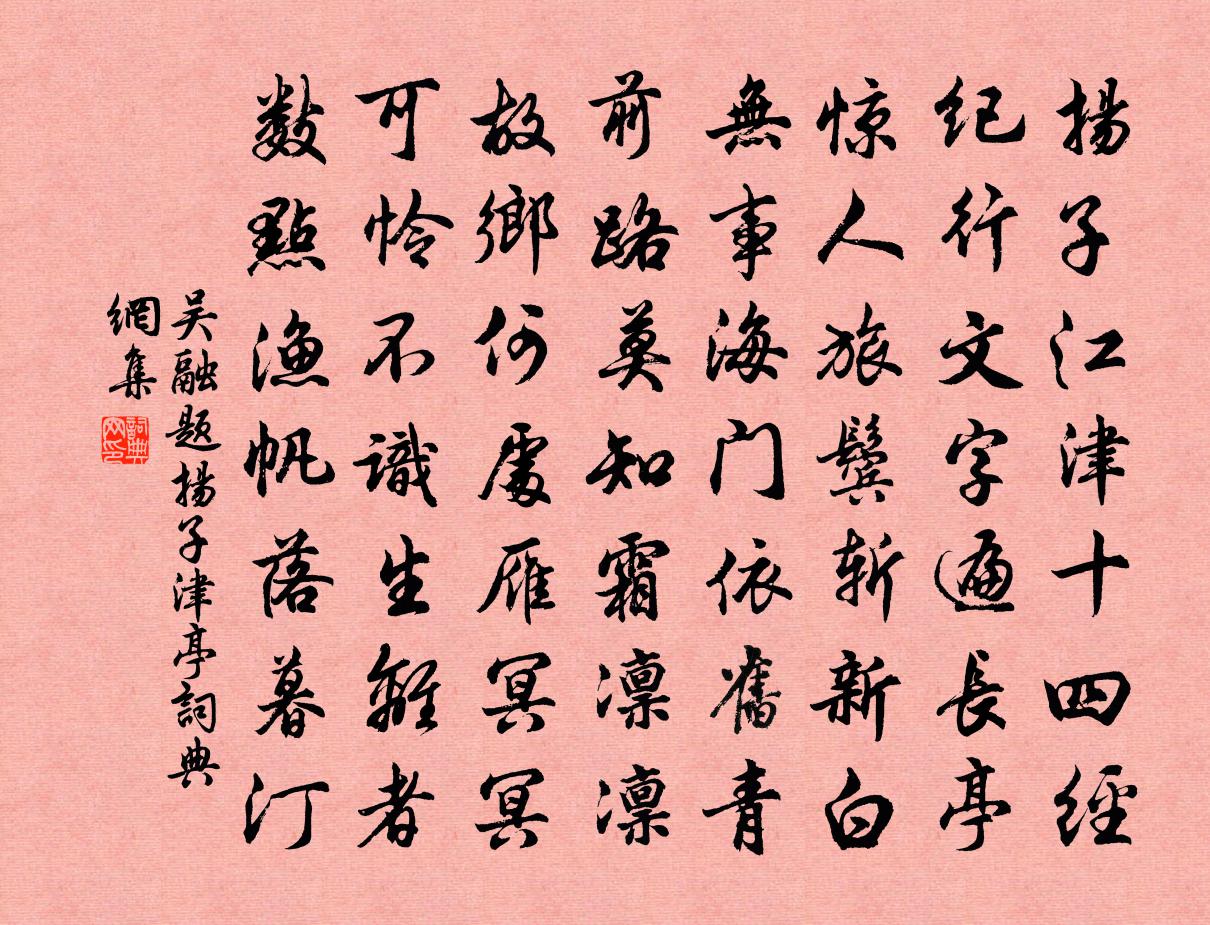 揚子江津十四經
紀行文字遍長亭
惊人旅鬢斬新白
無事海门依舊青
前路莫知霜凛凛
故鄉何處雁冥冥
可怜不識生離者
數點漁帆落暮汀
吴融题揚子津亭詞典
網集
詞典网印